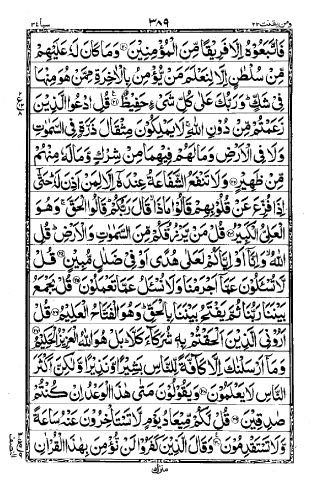 ومن يقنت ٢٢ ٣٨٩ سبا ٣٤
فَاتَّبَعُوْهُ اِلَّا فَرِيْقًا مِّنَ الْمُؤْمِنِيْنَ ۝٢٠ وَمَا كَانَ لَهٗ عَلَيْهِمْ
مِّنْ سُلْطٰنٍ اِلَّا لِنَعْلَمَ مَنْ يُّؤْمِنُ بِالْاٰخِرَةِ مِمَّنْ هُوَ مِنْهَا
فِيْ شَكٍّ ؕ وَرَبُّكَ عَلٰى كُلِّ شَيْءٍ حَفِيْظٌ ۝٢١ قُلِ ادْعُوا الَّذِيْنَ
زَعَمْتُمْ مِّنْ دُوْنِ اللّٰهِ ۚ لَا يَمْلِكُوْنَ مِثْقَالَ ذَرَّةٍ فِي السَّمٰوٰتِ
وَلَا فِي الْاَرْضِ وَمَا لَهُمْ فِيْهِمَا مِنْ شِرْكٍ وَّمَا لَهٗ مِنْهُمْ
مِّنْ ظَهِيْرٍ ۝٢٢ وَلَا تَنْفَعُ الشَّفَاعَةُ عِنْدَهٗۤ اِلَّا لِمَنْ اَذِنَ لَهٗ ؕ حَتّٰۤى
اِذَا فُزِّعَ عَنْ قُلُوْبِهِمْ قَالُوْا مَاذَا ۙ قَالَ رَبُّكُمْ ؕ قَالُوا الْحَقَّ ۚ وَهُوَ
الْعَلِيُّ الْكَبِيْرُ ۝٢٣ قُلْ مَنْ يَّرْزُقُكُمْ مِّنَ السَّمٰوٰتِ وَالْاَرْضِ ؕ قُلِ
اللّٰهُ ۙ وَاِنَّاۤ اَوْ اِيَّاكُمْ لَعَلٰى هُدًى اَوْ فِيْ ضَلٰلٍ مُّبِيْنٍ ۝٢٤ قُلْ
لَّا تُسْـَٔلُوْنَ عَمَّاۤ اَجْرَمْنَا وَلَا نُسْـَٔلُ عَمَّا تَعْمَلُوْنَ ۝٢٥ قُلْ يَجْمَعُ
بَيْنَنَا رَبُّنَا ثُمَّ يَفْتَحُ بَيْنَنَا بِالْحَقِّ ؕ وَهُوَ الْفَتَّاحُ الْعَلِيْمُ ۝٢٦ قُلْ
اَرُوْنِيَ الَّذِيْنَ اَلْحَقْتُمْ بِهٖ شُرَكَآءَ كَلَّا ؕ بَلْ هُوَ اللّٰهُ الْعَزِيْزُ الْحَكِيْمُ ۝٢٧
وَمَاۤ اَرْسَلْنٰكَ اِلَّا كَآفَّةً لِّلنَّاسِ بَشِيْرًا وَّنَذِيْرًا وَّلٰكِنَّ اَكْثَرَ
النَّاسِ لَا يَعْلَمُوْنَ ۝٢٨ وَيَقُوْلُوْنَ مَتٰى هٰذَا الْوَعْدُ اِنْ كُنْتُمْ
صٰدِقِيْنَ ۝٢٩ قُلْ لَّكُمْ مِّيْعَادُ يَوْمٍ لَّا تَسْتَاْخِرُوْنَ عَنْهُ سَاعَةً
وَّلَا تَسْتَقْدِمُوْنَ ۝٣٠ وَقَالَ الَّذِيْنَ كَفَرُوْا لَنْ نُّؤْمِنَ بِهٰذَا الْقُرْاٰنِ